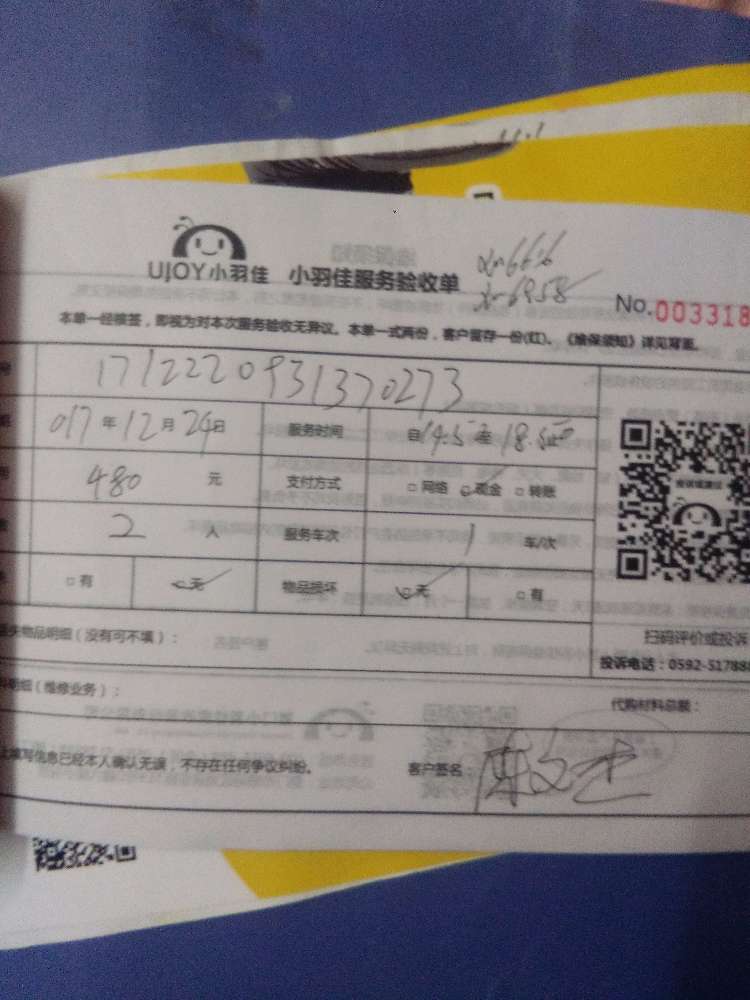 UJOY小羽佳 小羽佳服务验收单
xm6958
No.003318
本单一经核签，即视为对本次服务验收无异议。本单一式两份，客户留存一份(红)。《维保须知》详见背面。
号 1712220931370273
017年12月24日 服务时间 自14.5至18.5止
480 元 支付方式 □网络 □现金 □转账
2 人 服务车次 1 车/次
□有 □无 物品损坏 □无 □有
失物品明细（没有可不填）：
扫码评价或投诉
投诉电话：0592-517888
明细（维修业务）： 代购材料总额：
上填写信息已经本人确认无误，不存在任何争议纠纷。 客户签名